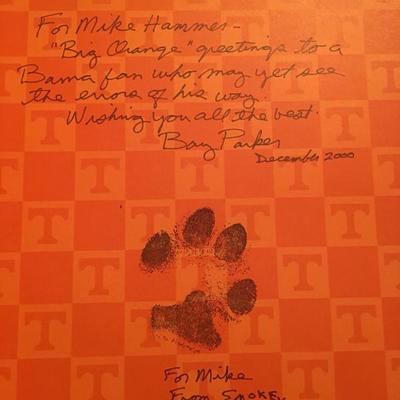 For Mike Hammes -
"Big Orange" greetings to a
Bama fan who may yet see
the errors of his way.
Wishing you all the best.
Barry Parker
December 2000
For Mike
From Smokey